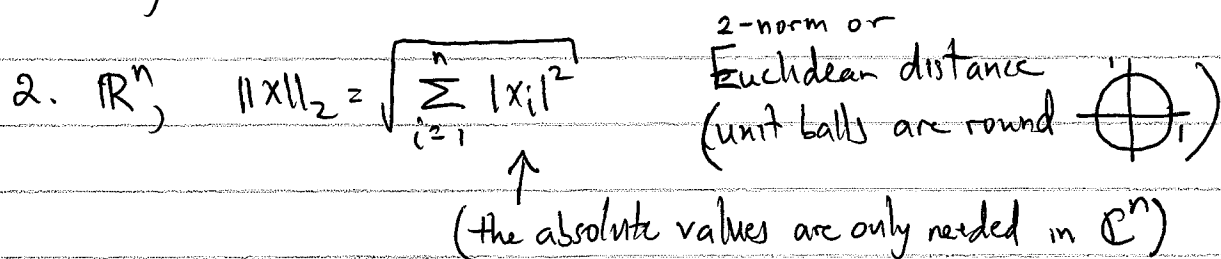 2-norm or
2. ℝⁿ, ||x||₂ = √(∑ᵢ₌₁ⁿ |xᵢ|²) Euclidean distance
(unit balls are round 1 1)
↑
(the absolute values are only needed in ℂⁿ)